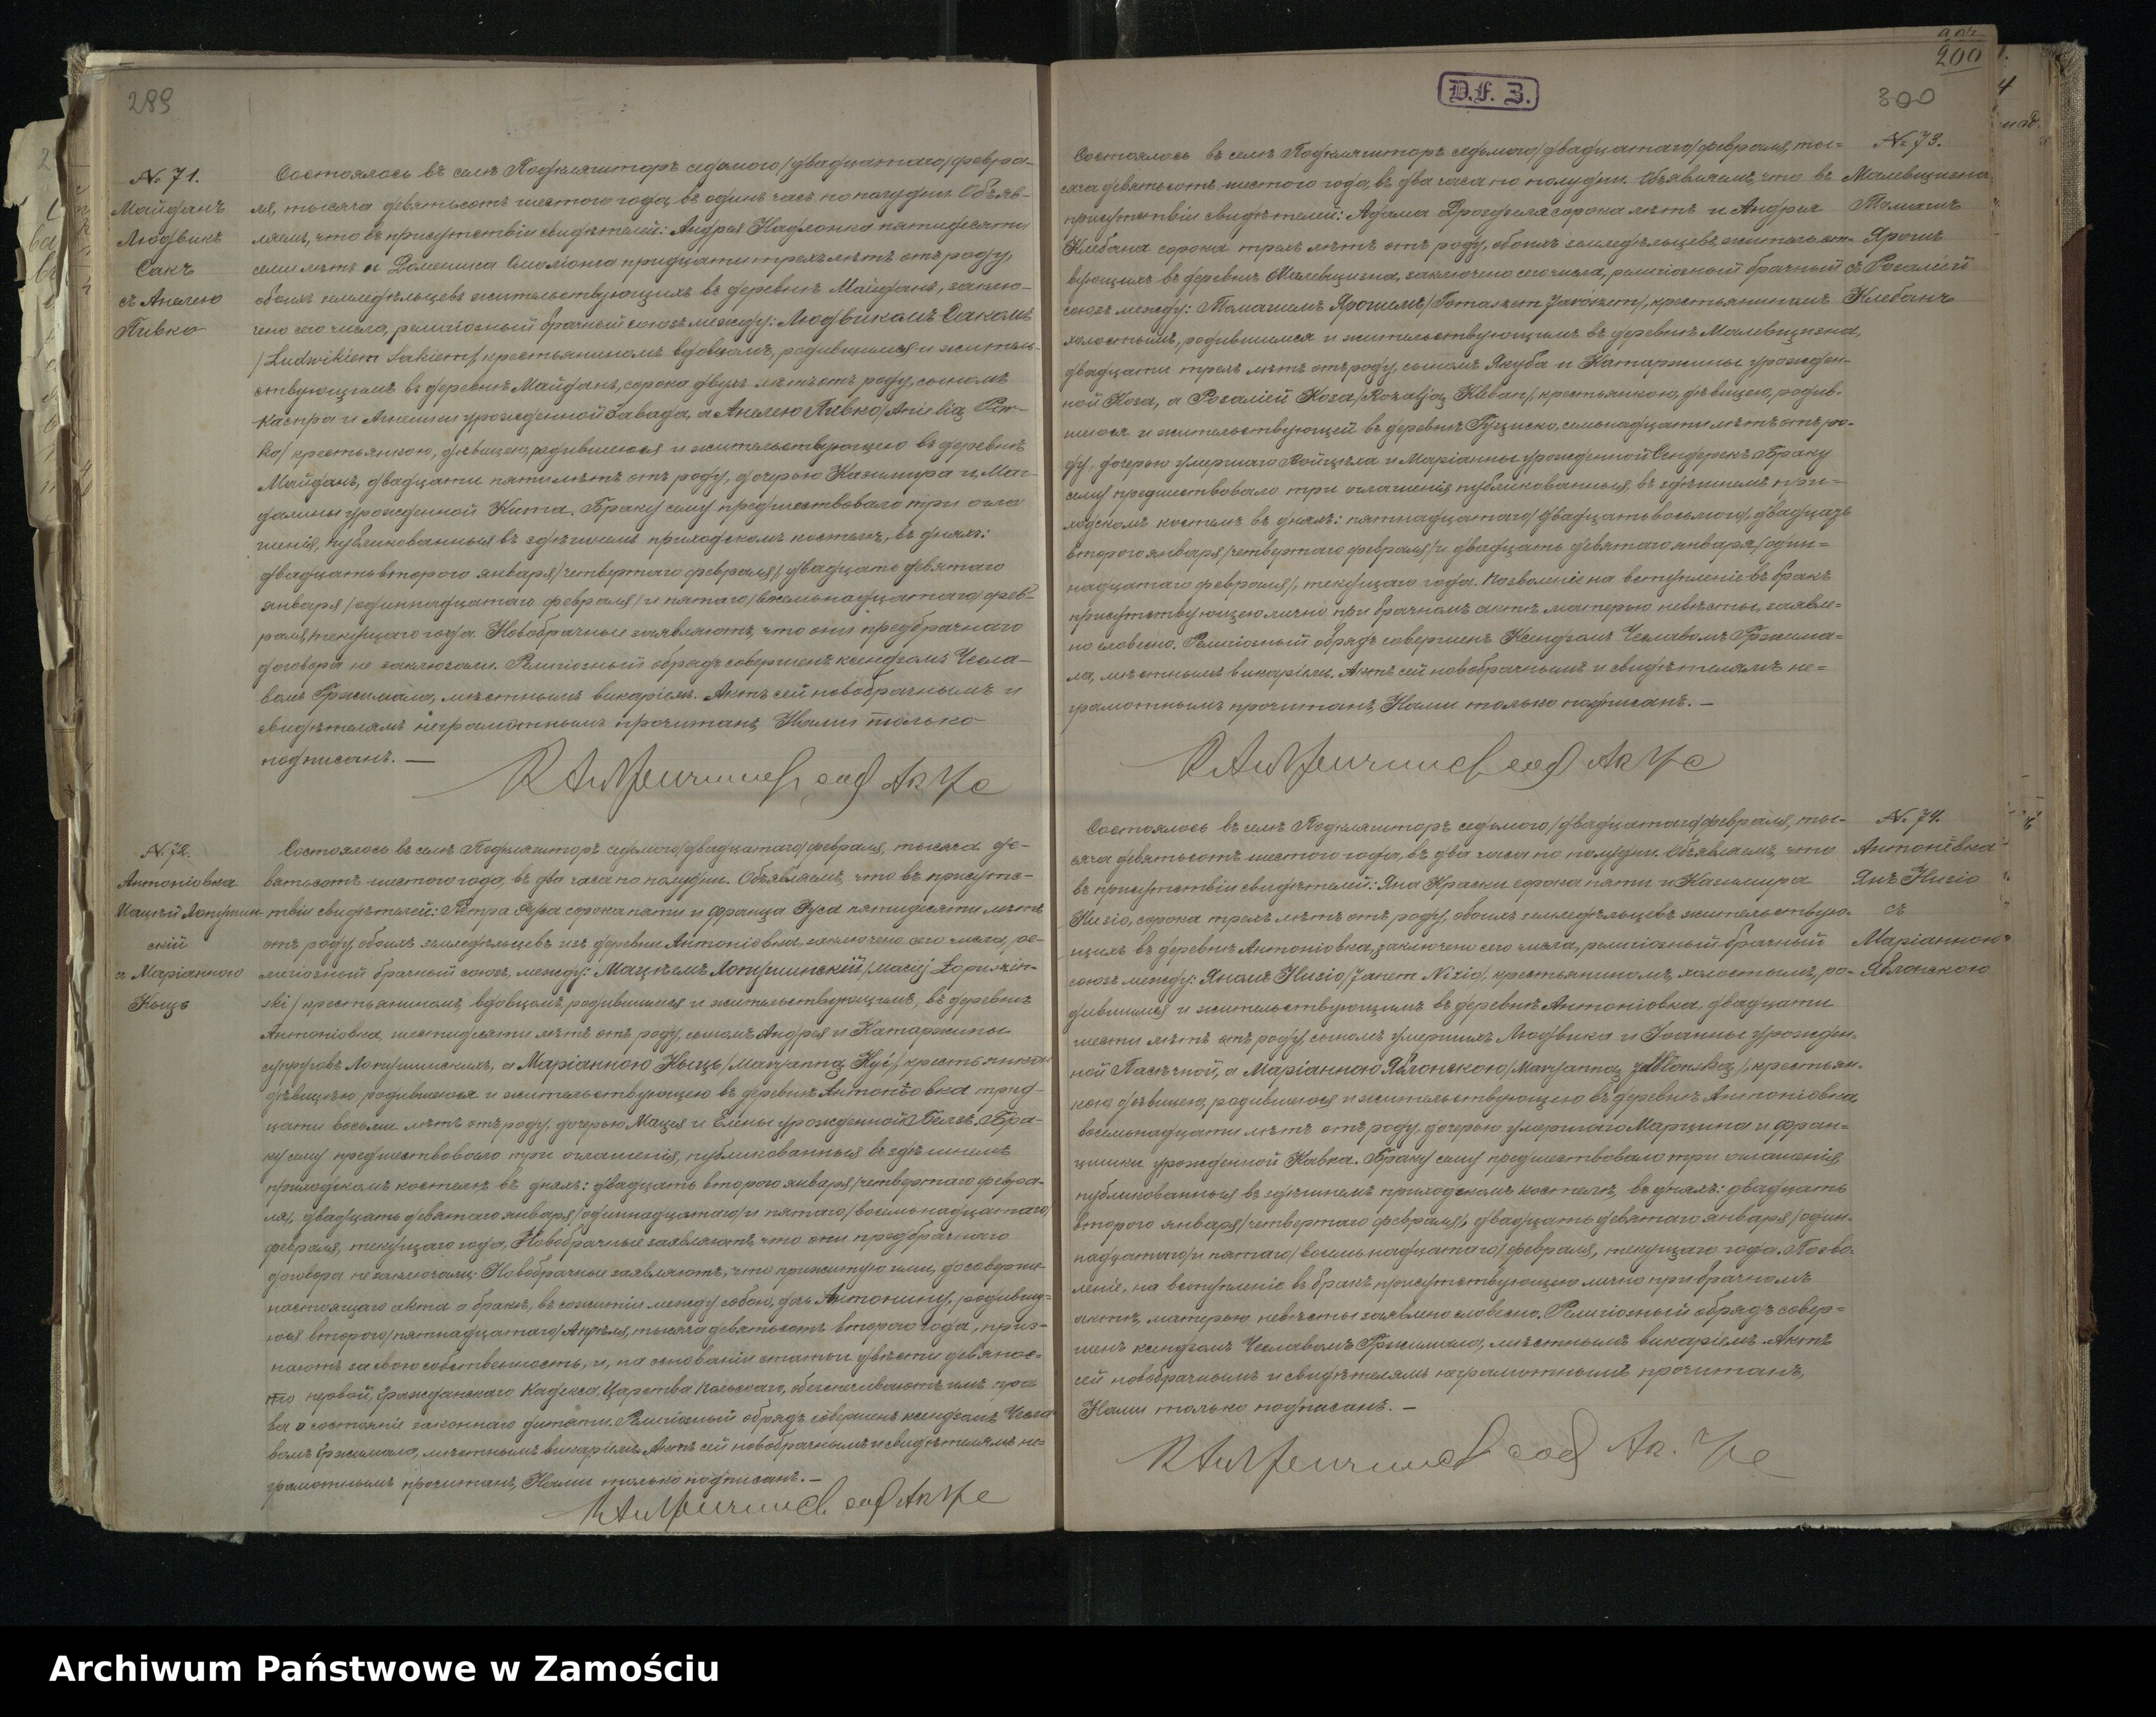 289
№ 71.
Майданъ
Людвикъ
Сакъ
съ Анелею
Пивко
Состоялось въ селѣ Подкляшторѣ седьмого /двадцатаго/ февра-
ля, тысяча девятьсотъ шестого года, въ одинъ часъ по полудни. Объяв-
ляемъ, что въ присутствіи свидѣтелей: Андрея Надлонка пятидесяти
семи лѣтъ и Доминика тридцати трехъ лѣтъ отъ роду,
обоихъ земледѣльцевъ жительствующихъ въ деревнѣ Майданъ, заклю-
чено сего числа, религіозный брачный союзъ между: Людвикомъ Сакомъ
/Ludwikiem Sakiem/, крестьяниномъ вдовцомъ, родившимся и житель-
ствующимъ въ деревнѣ Майданъ, сорока двухъ лѣтъ отъ роду, сыномъ
Каспра и Агнешки урожденной Завада, а Анелею Пивко /Anielią Piw-
ko/ крестьянкою, дѣвицею, родившеюся и жительствующею въ деревнѣ
Майданъ, двадцати пяти лѣтъ отъ роду, дочерью Казимира и Маг-
далины урожденной Кита. Браку сему предшествовало три огла
шенія, публикованныя въ здѣшнемъ приходскомъ костелѣ, въ дняхъ:
двадцать второго января /четвертаго февраля/, двадцать девятаго
января /одиннадцатаго февраля/ и пятаго /восемьнадцатаго/ фев-
раля, текущаго года. Новобрачные заявляютъ, что они предбрачнаго
договора не заключали. Религіозный обрядъ совершенъ ксендзомъ Чесла-
вомъ Гржимала, мѣстнымъ викаріемъ. Актъ сей новобрачнымъ и
свидѣтелямъ неграмотнымъ прочитанъ, Нами только
подписанъ. —
№ 72.
Антоніовка
Мацѣй Лопушин-
скій
съ Маріанною
Кыць
Состоялось въ селѣ Подкляшторѣ седьмого /двадцатаго/ февраля, тысяча де-
вятьсотъ шестого года, въ два часа по полудни. Объявляемъ, что въ присутс-
твіи свидѣтелей: Петра сорока пяти и Франца Гуса пятидесяти лѣтъ
отъ роду, обоихъ земледѣльцевъ изъ деревни Антоніовка, заключено сего числа, ре-
лигіозный брачный союзъ, между: Мацѣемъ Лопушинскій /Maciej Łopuszyń-
ski/ крестьяниномъ, вдовцомъ, родившимся и жительствующимъ, въ деревнѣ
Антоніовка, шестидесяти лѣтъ отъ роду, сыномъ Андрея и Катаржины
супруговъ Лопушинскихъ, а Маріанною Кыць /Maryanną Kyć/, крестьянкою
дѣвицею, родившеюся и жительствующею въ деревнѣ Антоніовка трид-
цати восьми лѣтъ отъ роду, дочерью Мацея и Елены урожденной Белзъ. Бра-
ку сему предшествовало три оглашенія, публикованныя въ здѣшнемъ
приходскомъ костелѣ въ дняхъ: двадцать второго января /четвертаго февра-
ля/, двадцать девятаго января /одиннадцатаго/ и пятаго /восемьнадцатаго/
февраля, текущаго года. Новобрачные заявляютъ, что они предбрачнаго
договора не заключали: Новобрачные заявляютъ, что прижитую ими, до соверше-
настоящаго акта о бракѣ, въ сожитіи между собою, дочь Антонину, родившу-
юся второго /пятнадцатаго/ Апрѣля, тысяча девятьсотъ второго года, приз-
наютъ за свою собственность, и, на основаніи статьи двѣсти девянос-
то первой, Гражданскаго Кодекса, Царства Польскаго, обезпечиваютъ имъ пра
ва и состояніе законнаго дитяти. Религіозный обрядъ совершенъ ксендзомъ Чесла
вомъ Гржимала, мѣстнымъ викаріемъ. Актъ сей новобрачнымъ и свидѣтелямъ не-
грамотнымъ прочитанъ, Нами только подписанъ. —
D.F.Z.
200
300
№ 73.
Малевщизна
Томашъ
Ярошъ
съ Розаліей
Клебанъ
Состоялось въ селѣ Подкляшторѣ седьмого /двадцатаго/ февраля, ты-
сяча девятьсотъ шестого года, въ два часа по полудни. Объявляемъ, что въ
присутствіи свидѣтелей: Адама Дроздзеля сорока лѣтъ и Андрея
Клебана сорока трехъ лѣтъ отъ роду, обоихъ земледѣльцевъ, жительст-
вующихъ въ деревнѣ Малевщизна, заключено сего числа, религіозный брачный
союзъ между: Томашемъ Ярошемъ /Tomaszem Jaroszem/, крестьяниномъ
холостымъ, родившимся и жительствующимъ въ деревнѣ Малевщизна,
двадцати трехъ лѣтъ отъ роду, сыномъ Якуба и Катаржины урожден-
ной Коза, а Розаліей Коза /Rozalją Kleban/, крестьянкою, дѣвицею, родив-
шеюся и жительствующей въ деревнѣ Гуциско, семьнадцати лѣтъ отъ ро-
ду, дочерью умершаго Войцѣха и Маріанны урожденной Сендерекъ. Браку
сему предшествовало три оглашенія, публикованныя, въ здѣшнемъ при-
ходскомъ костелѣ въ дняхъ: пятнадцатаго /двадцать восьмого/, двадцать
второго января /четвертаго февраля/ и двадцать девятаго января /один-
надцатаго февраля/, текущаго года. Позволеніе на вступленіе въ бракъ
присутствующею лично при брачномъ актѣ матерью невѣсты, заявле-
но словесно. Религіозный обрядъ совершенъ Ксендзомъ Чеславомъ Гржима-
ла, мѣстнымъ викаріемъ. Актъ сей новобрачнымъ и свидѣтелямъ не-
грамотнымъ прочитанъ, Нами только подписанъ. —
№ 74.
Антоніовка
Янъ Низіо
съ
Маріанною
Яблонскою
Состоялось въ селѣ Подкляшторѣ седьмого /двадцатаго/ февраля, ты-
сяча девятьсотъ шестого года, въ два часа по полудни. Объявляемъ, что
въ присутствіи свидѣтелей: Яна Краски сорока пяти и Казимира
Низіо, сорока трехъ лѣтъ отъ роду, обоихъ земледѣльцевъ жительствую-
щихъ въ деревнѣ Антоніовка, заключено сего числа, религіозный брачный
союзъ между: Яномъ Низіо /Janem Nizio/, крестьяниномъ, холостымъ, ро-
дившимся и жительствующимъ въ деревнѣ Антоніовка, двадцати
шести лѣтъ отъ роду, сыномъ умершихъ Людвика и Іоанны урожден-
ной Пасѣчной, а Маріанною Яблонскою /Maryanną Jabłońską/, крестьян-
кою, дѣвицею, родившеюся и жительствующею въ деревнѣ Антоніовка,
восемьнадцати лѣтъ отъ роду, дочерью умершаго Марцина и Фран-
цишки урожденной Кавка. Браку сему предшествовало три оглашенія,
публикованныя въ здѣшнемъ приходскомъ костелѣ, въ дняхъ: двадцать
второго января /четвертаго февраля/, двадцать девятаго января /один-
надцатаго/ и пятаго /восемьнадцатаго/ февраля, текущаго года. Позво-
леніе, на вступленіе въ бракъ присутствующею лично при брачномъ
актѣ, матерью невѣсты заявлено словесно. Религіозный обрядъ совер-
шенъ ксендзомъ Чеславомъ Гржимало, мѣстнымъ викаріемъ. Актъ
сей новобрачнымъ и свидѣтелямъ неграмотнымъ прочитанъ,
Нами только подписанъ. —
Archiwum Państwowe w Zamościu